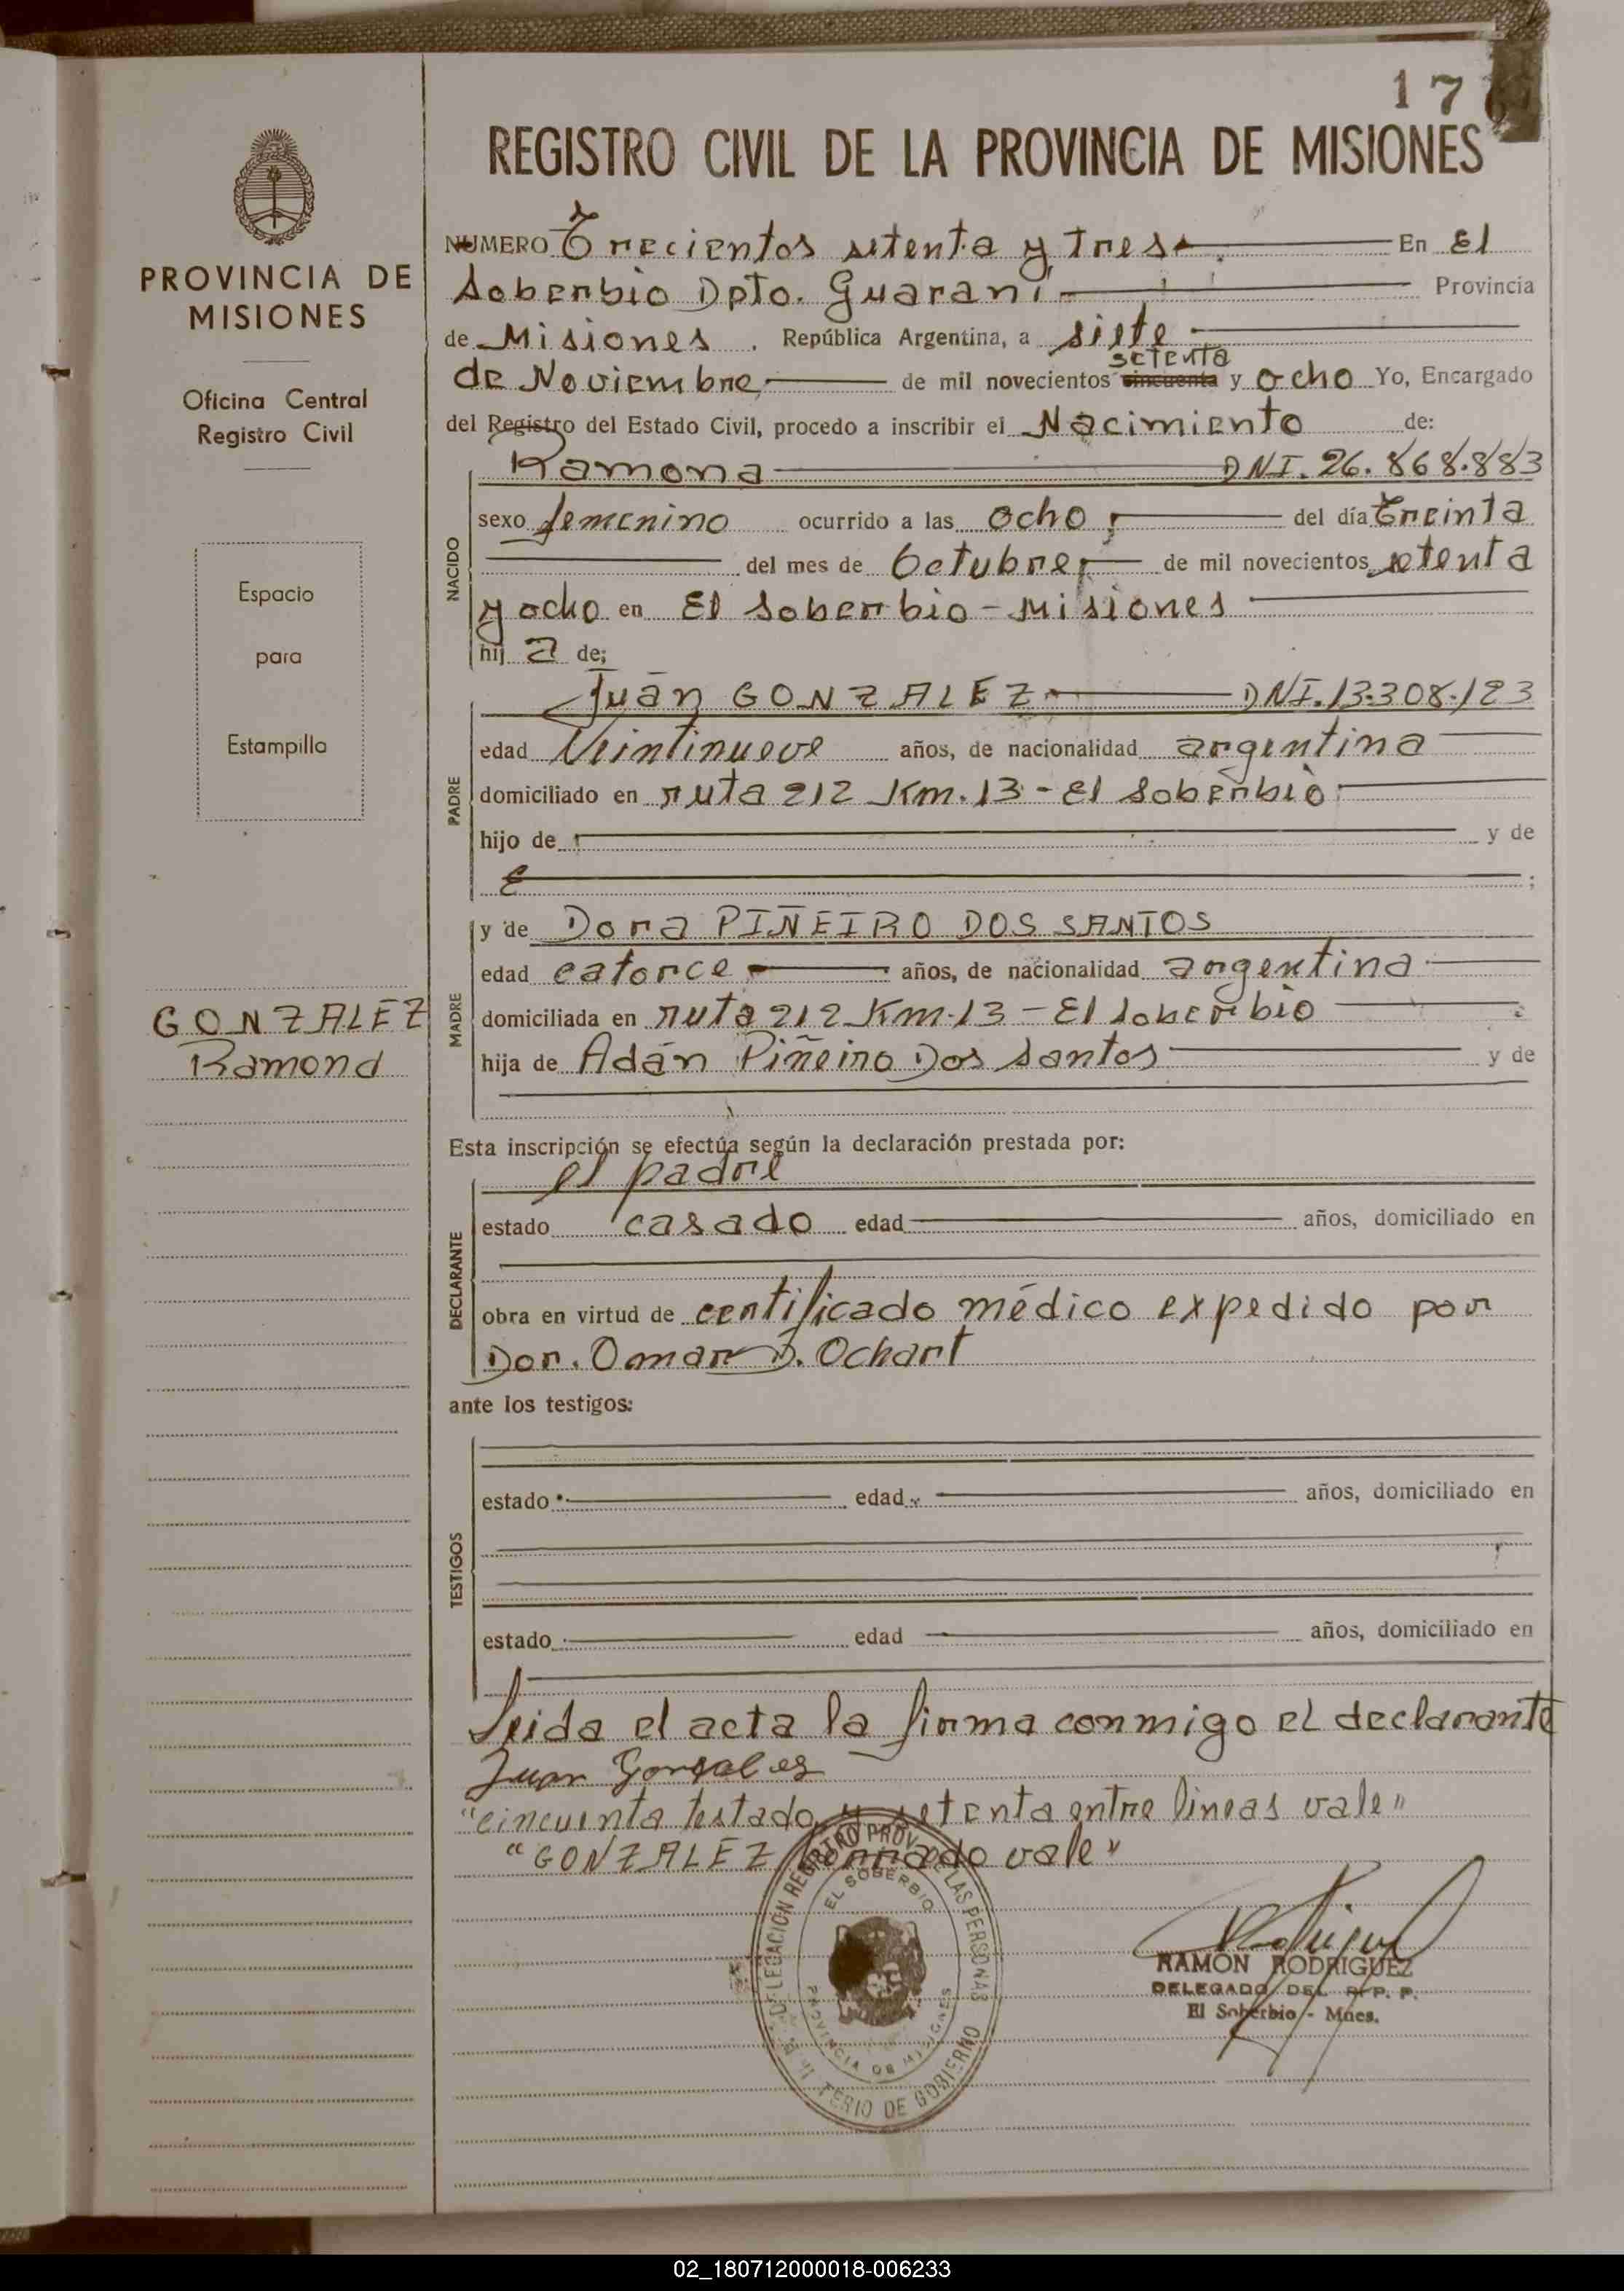 17
REGISTRO CIVIL DE LA PROVINCIA DE MISIONES
PROVINCIA DE
MISIONES
Oficina Central
Registro Civil
Espacio
para
Estampilla
GONZALEZ
Ramona
NUMERO Trecientos setenta y tres En El
Soberbio Dpto. Guaraní Provincia
de Misiones. República Argentina, a siete
setenta
de Noviembre de mil novecientos cincuenta y ocho Yo, Encargado
del Registro del Estado Civil, procedo a inscribir el Nacimiento de:
Ramona DNI. 26.868.883
NACIDO
sexo femenino ocurrido a las ocho del día Treinta
del mes de Octubre de mil novecientos setenta
y ocho en El Soberbio - Misiones
hij a de;
PADRE
Juán GONZALEZ DNI. 13.308.123
edad Veintinueve años, de nacionalidad argentina
domiciliado en ruta 212 Km. 13 - El Soberbio
hijo de y de
;
MADRE
y de Dora PIÑEIRO DOS SANTOS
edad catorce años, de nacionalidad argentina
domiciliada en ruta 212 Km. 13 - El Soberbio
hija de Adán Piñeiro Dos Santos y de
Esta inscripción se efectúa según la declaración prestada por:
DECLARANTE
el padre
estado casado edad años, domiciliado en
obra en virtud de certificado médico expedido por
Dor. Omar D. Ochart
ante los testigos:
TESTIGOS
estado edad años, domiciliado en
estado edad años, domiciliado en
Leida el acta la firma conmigo el declarante
Juan Gonsales
"cincuenta testado y setenta entre lineas vale"
"GONZALEZ borrado vale"
DELEGACION REGISTRO PROV. DE LAS PERSONAS
EL SOBERBIO
PROVINCIA DE MISIONES
MINISTERIO DE GOBIERNO
RAMON RODRIGUEZ
DELEGADO DEL R. P. P.
El Soberbio - Mnes.
02_180712000018-006233